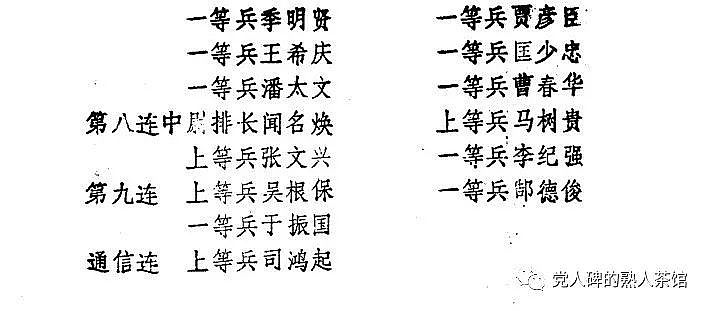 一等兵季明贤 一等兵贾彦臣
一等兵王希庆 一等兵匡少忠
一等兵潘太文 一等兵曹春华
第八连中尉排长闻名焕 上等兵马树贵
上等兵张文兴 一等兵李纪强
第九连 上等兵吴根保 一等兵郜德俊
一等兵于振国
通信连 上等兵司鸿起
党人碑的熟人茶馆